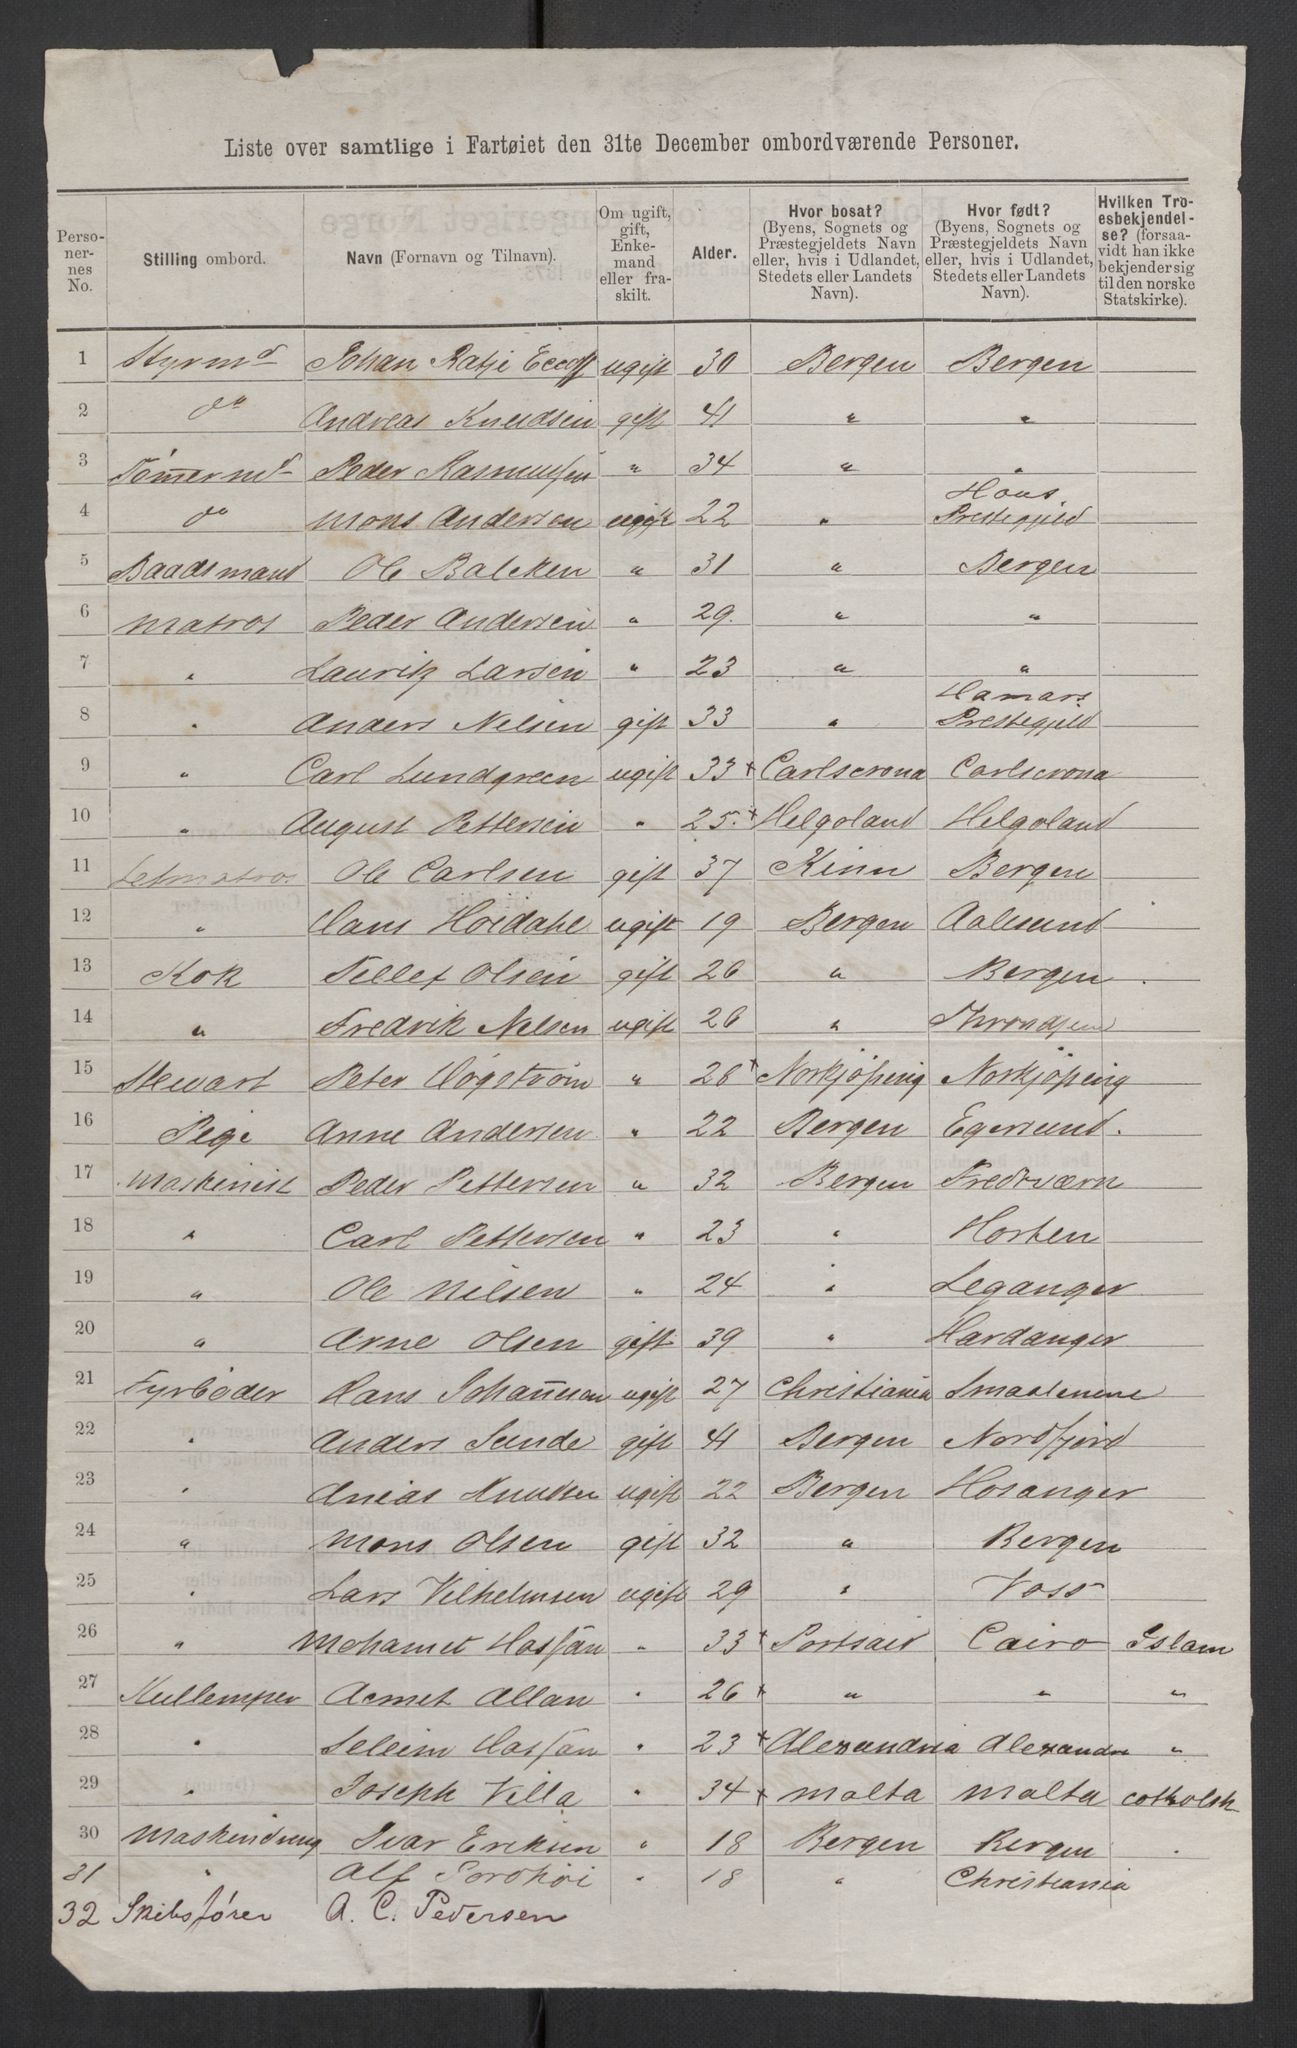 Liste over samtlige i Fartøiet den 31te December ombordværende Personer.
Perso-nernes No. | Stilling ombord. | Navn (Fornavn og Tilnavn). | Om ugift, gift, Enkemand eller fraskilt. | Alder. | Hvor bosat? (Byens, Sognets og Præstegjeldets Navn eller, hvis i Udlandet, Stedets eller Landets Navn). | Hvor født? (Byens, Sognets og Præstegjeldets Navn eller, hvis i Udlandet, Stedets eller Landets Navn). | Hvilken Troesbekjendelse? (forsaavidt han ikke bekjender sig til den norske Statskirke).
1 Styrmd Johan Ratje ugift 30 Bergen Bergen
2 do Andreas Knudsen gift 41 " "
3 Tömermd Peder Rasmussen " 34 " "
4 do Mons Andersen ugift 22 " Hous Prestegjeld
5 Baadsmand Ole Balchen " 31 " Bergen
6 Matros Peder Andersen " 29. " "
7 " Lauritz Larsen " 23 " "
8 " Anders Nelsen gift 33 " Hamars Prestegjeld
9 " Carl Lundgreen ugift 33 + Carlscrona Carlscrona
10 " August Pettersen " 25. + Helgoland Helgoland
11 Letmatros Ole Carlsen gift 37 Kinn Bergen
12 " Hans Hoidahl ugift 19 Bergen Aalesund
13 Kok Tellef Olsen gift 26 " Bergen
14 " Fredrik Nelsen ugift 26 "
15 Stewart Peter Högström " 26 + Norkjöping Norkjöping
16 Pige Anne Andersen " 22 Bergen Egersund.
17 Maskinist Peder Pettersen " 32 Bergen Fredrværn
18 " Carl Pettersen " 23 " Horten
19 " Ole Nilsen " 24 " Leganger
20 " Arne Olsen gift 39 " Hardanger
21 Fyrböder Hans Johannesen ugift 27 Christiania Smaalenene
22 " Anders Sunde gift 41 Bergen Nordfjord
23 " Anias Knudsen ugift 22 Bergen Hosanger
24 " Mons Olsen gift 32 " Bergen
25 " Lars Vilhelmsen ugift 29 " Voss
26 " Mohamet Hassan " 33 + Portsaid Cairo Islam
27 Kullemper Acmet Allan " 26 + " " "
28 " Seleim Hassan " 23 + Alexandria Alexandria "
29 " Joseph Villa " 34 + Malta Malta catholsk
30 Maskindreng Ivar Eriksen " 18 Bergen Bergen
31 " Alf " 18 " Christiania
32 Skibsfører A. C. Pedersen